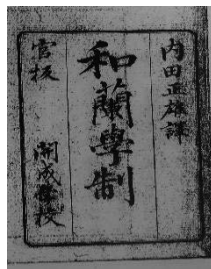 内田正雄譯
和蘭學制
官板 開成學校